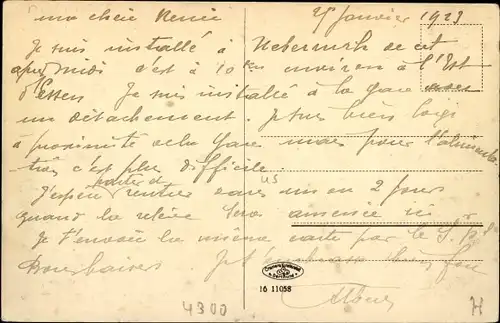 ma chère Renée 25 Janvier 1923
Je suis installé à de cet
après midi c'est à 10 km environ à l'Est
d'Essen Je suis installé à la gare avec
un détachement. Je suis bien logé
à proximité de la Gare mais pour l'alimenta-
tion c'est plus difficile.
J'espère rentrer dans un ou 2 jours
quand la relève sera amenée ici
Je t'envoie la même carte par le S.P.
Bons baisers. Je t'embrasse bien fort
16 11058
4300 H